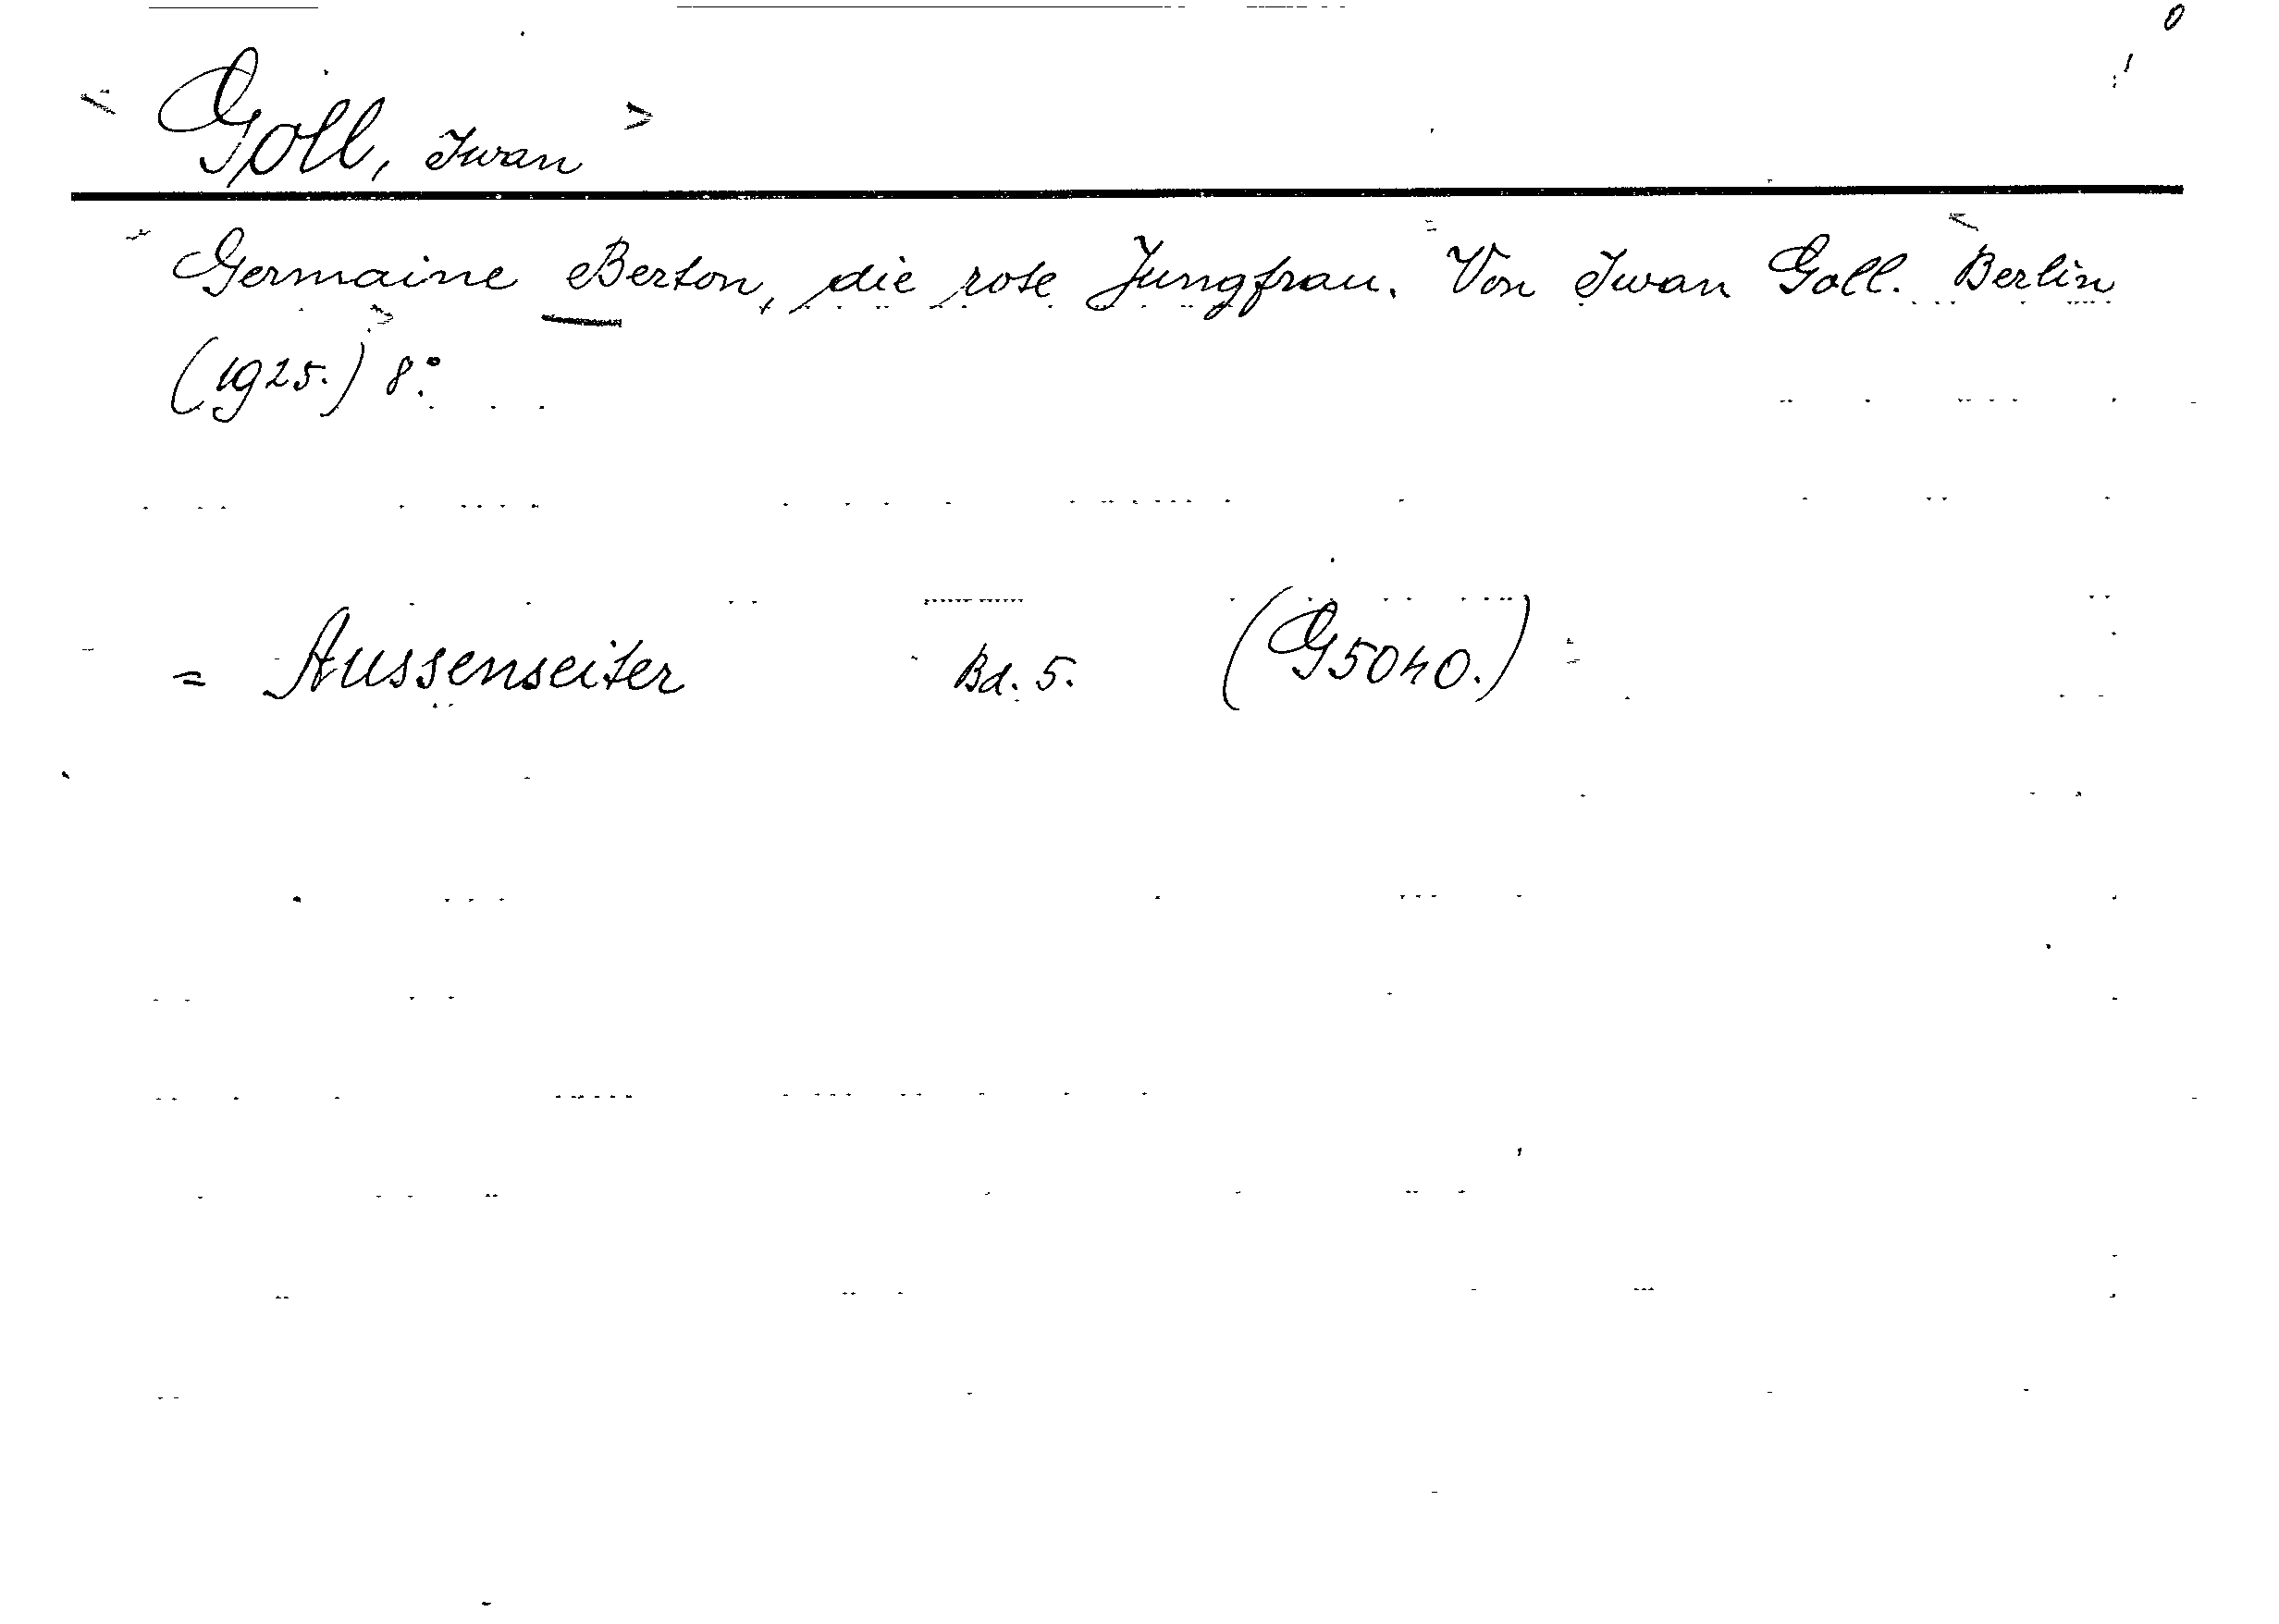 < Goll, Iwan >
Germaine Berton, die rote Jungfrau. Von Iwan Goll. Berlin
(1925.) 8°.
= Aussenseiter Bd. 5. (G5040.)